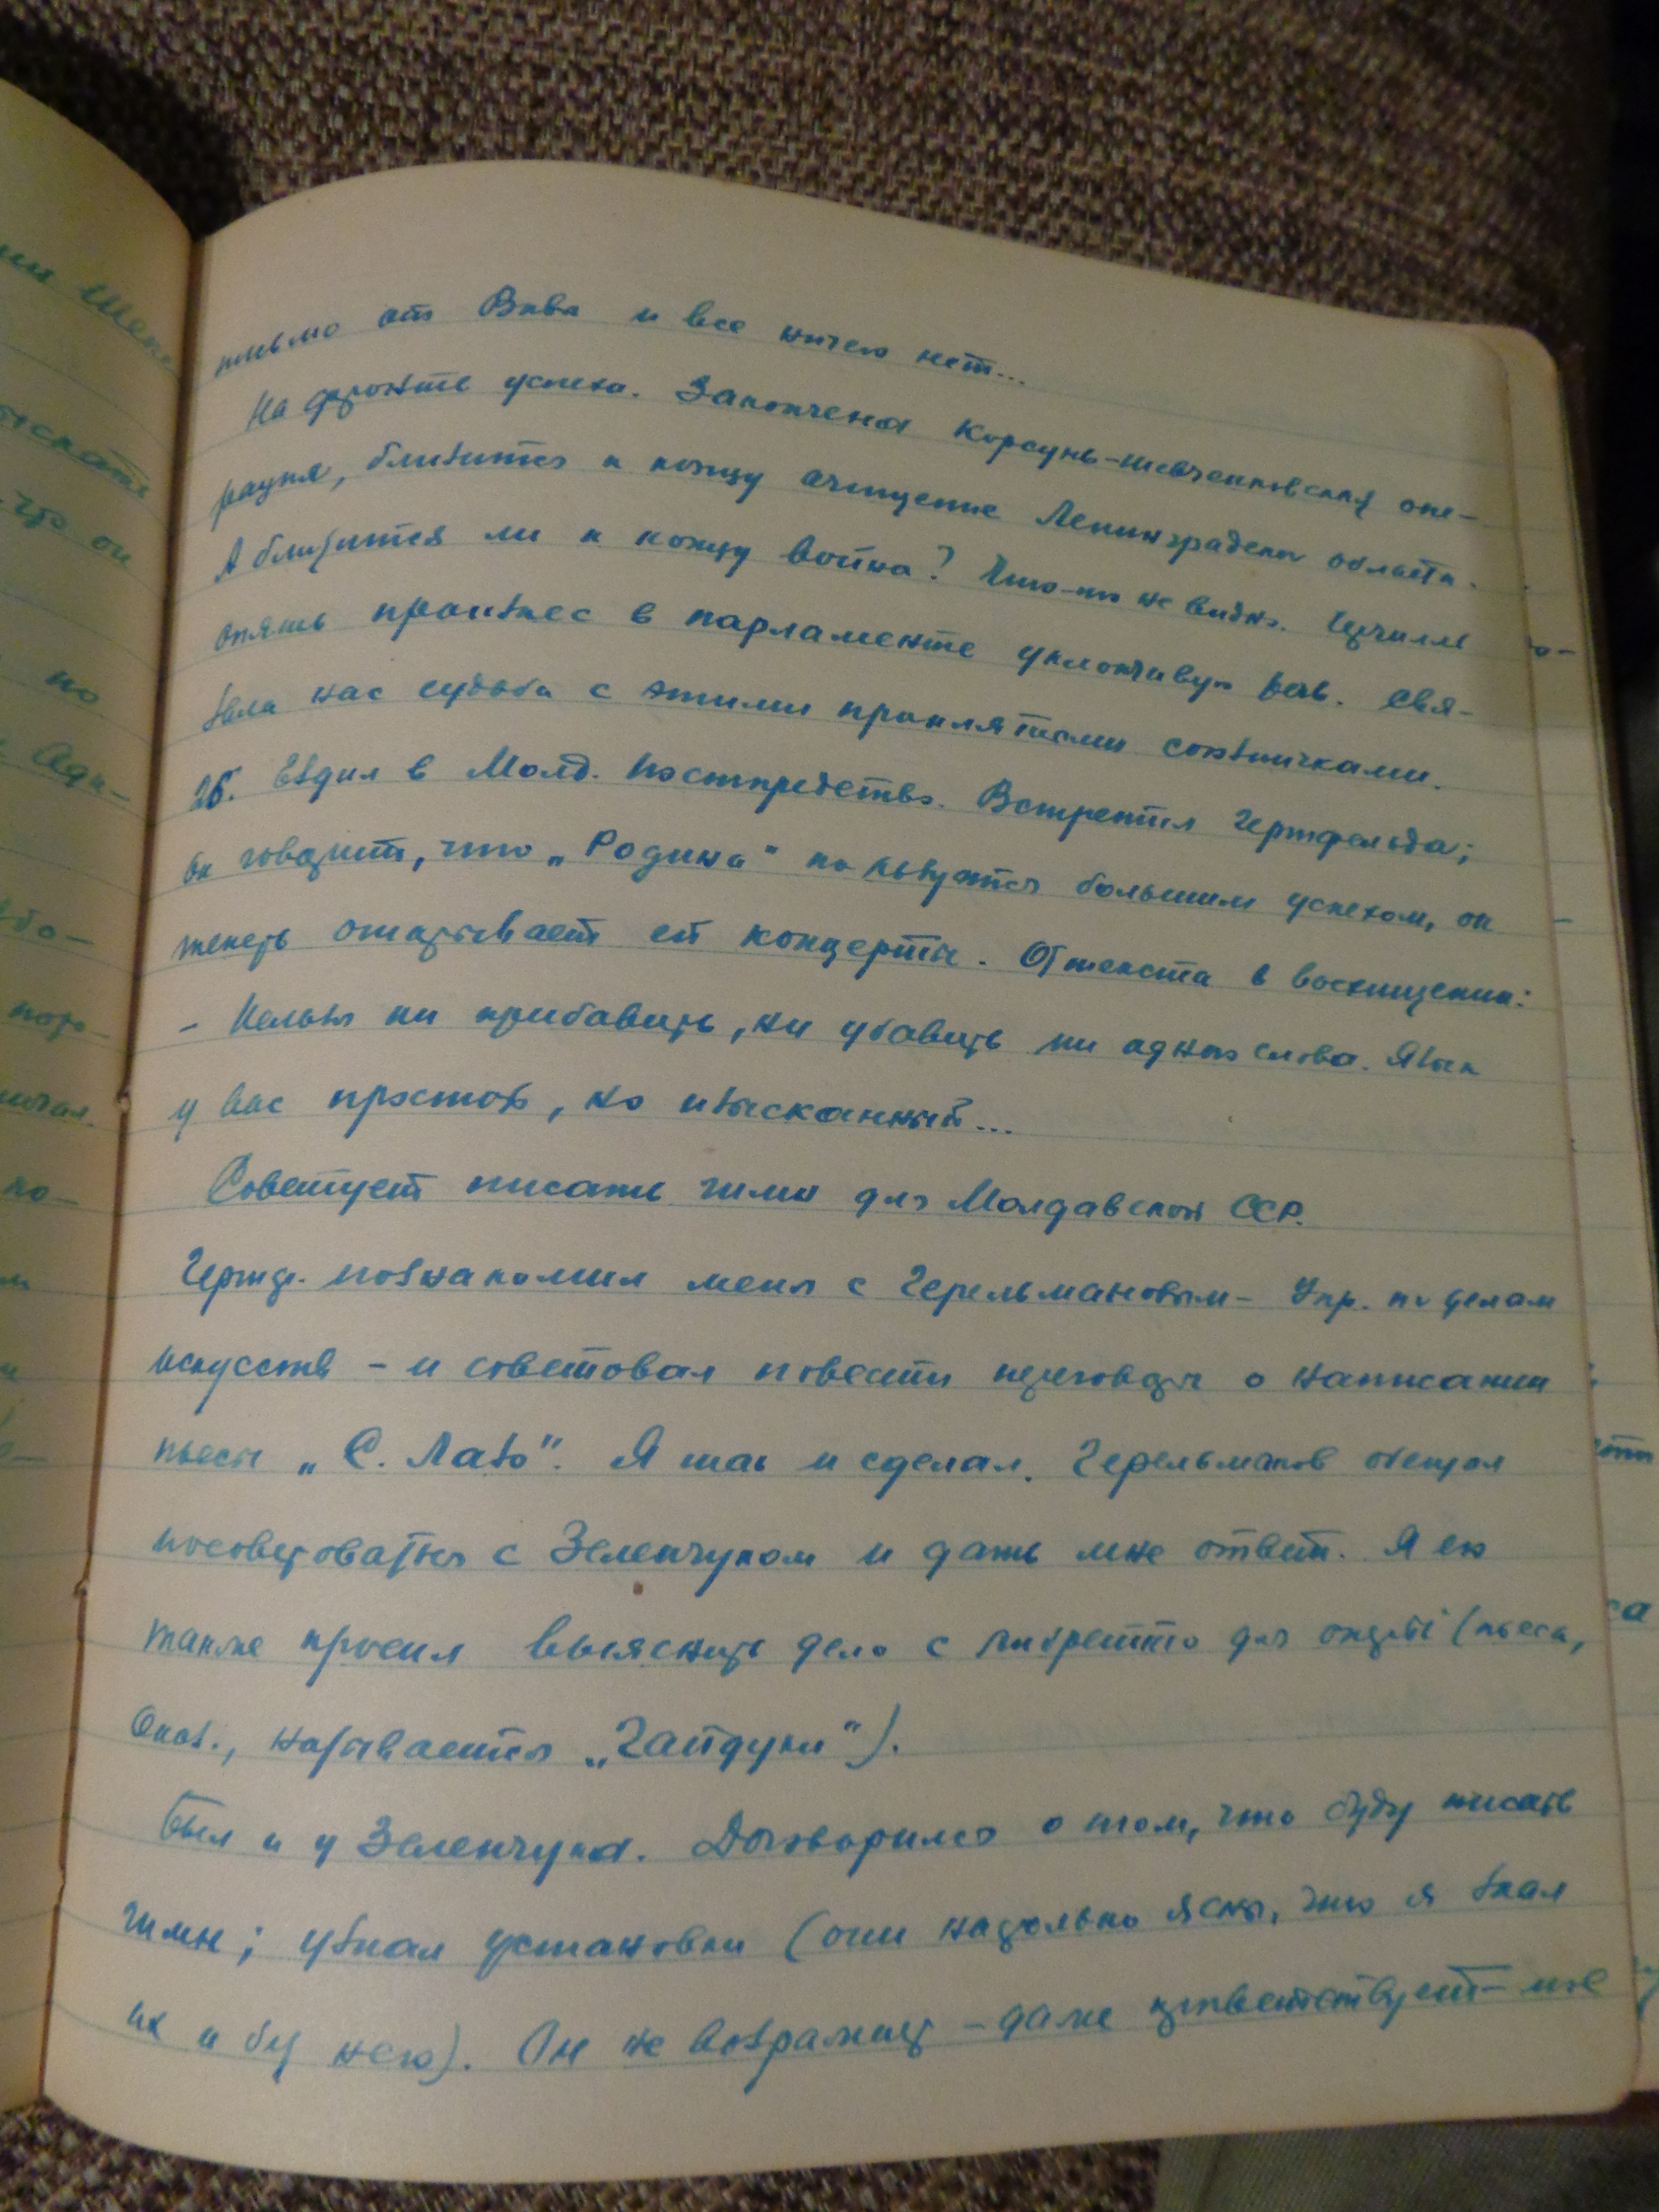 письмо от Вивы и все ничего нет...
На фронте успехи. Закончена Корсунь-шевченковская опе-
рация, близится к концу очищение Ленинградской области.
А близится ли к концу война? Что-то не видно. Черчилль
опять произнес в парламенте уклончивую речь. Свя-
зала нас судьба с этими проклятыми союзничками.
26. Ездил в Молд. постпредство. Встретил Гертфельда;
он говорит, что „Родина" пользуется большим успехом, он
теперь открывает ей концерты. От текста в восхищении:
- Нельзя ни прибавить, ни убавить ни одного слова. Язык
у вас простой, но изысканный...
Советует писать гимн для Молдавской ССР.
Гертф. познакомил меня с Герельмановым - Упр. по делам
искусств - и советовал повести переговоры о написании
пьесы „С. Лазо". Я так и сделал. Герельманов обещал
посоветоваться с Зеленчуком и дать мне ответ. Я его
также просил выяснить дело с либретто для оперы (пьеса,
оказ., называется „Гайдуки").
Был и у Зеленчука. Договорился о том, что буду писать
гимн; узнал установки (они настолько ясны, что я знал
их и без него). Он не возражает - даже приветствует - мое